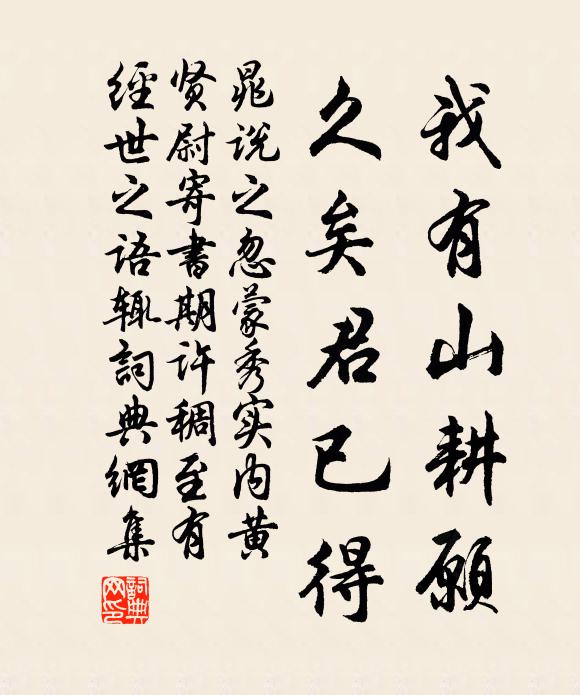 我有山耕願
久矣君已得
晁说之忽蒙秀实内黄
贤尉寄書期许稠至有
經世之语辄詞典網集
詞典网印